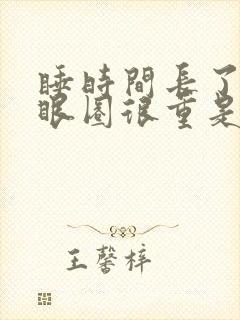 睡時間長了
眼圈很重是
王馨梓